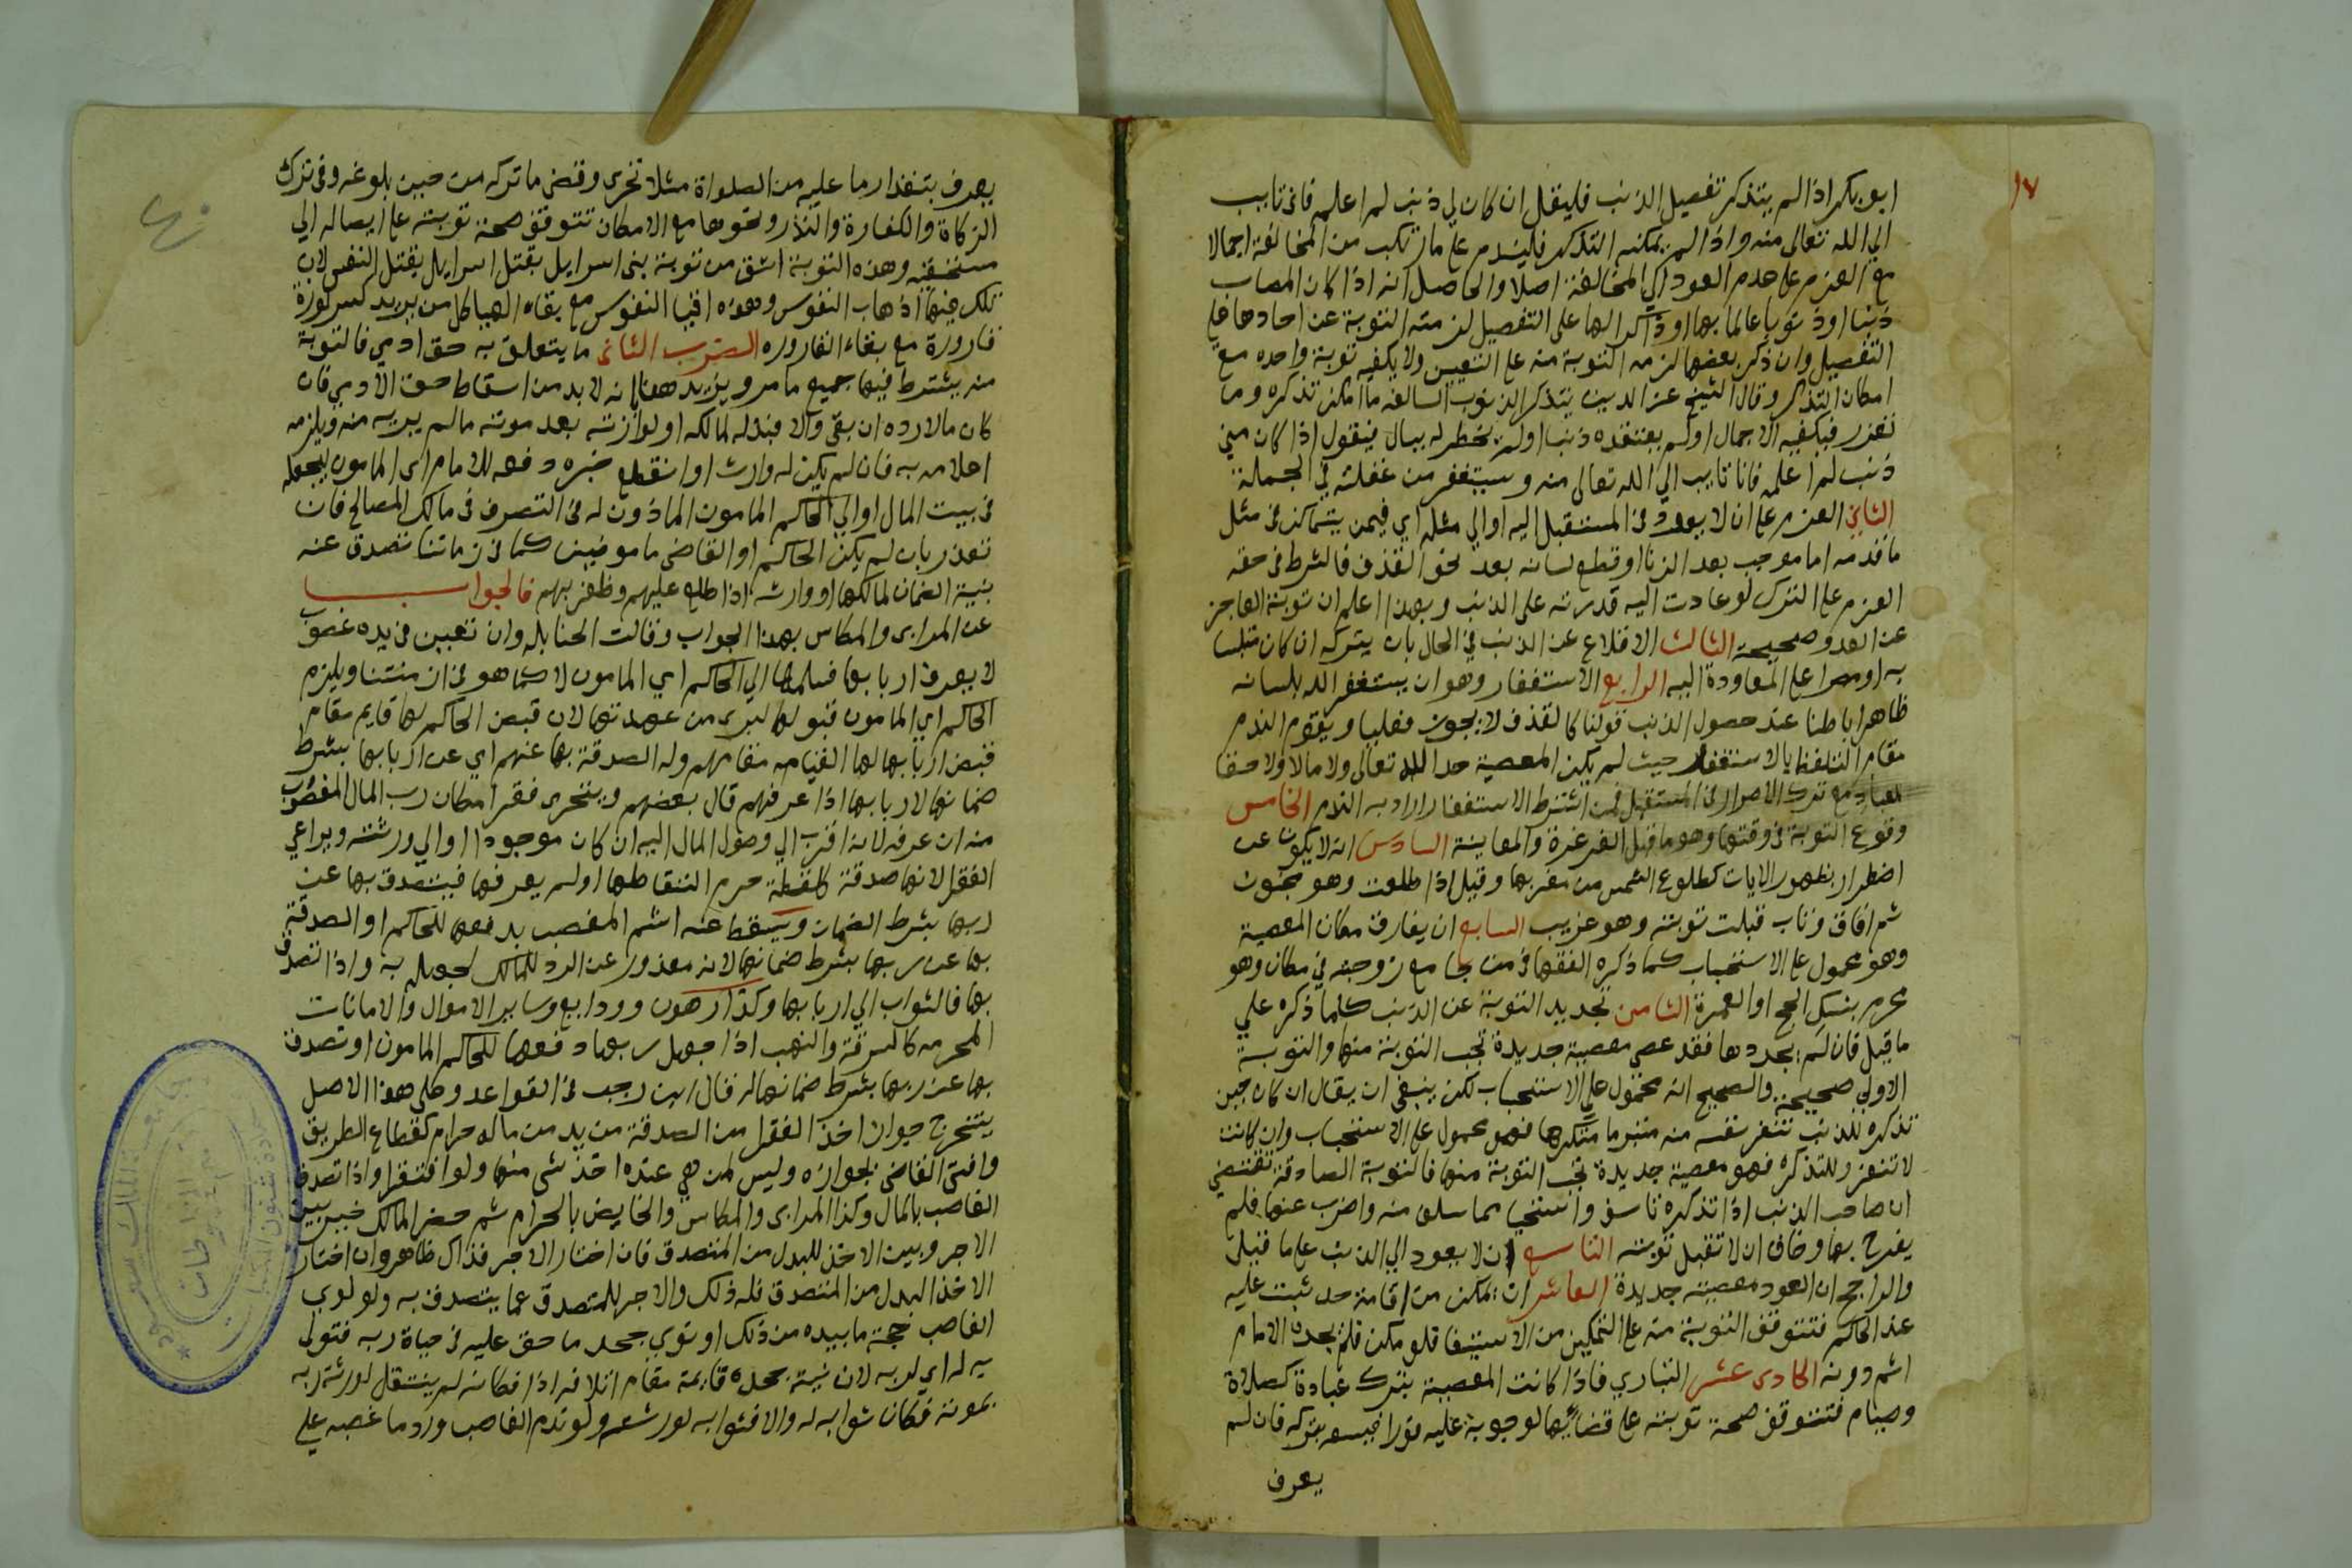 ١٧
ابو بكر اذا لم يتذكر تفصيل الذنب فليقل ان كان لي ذنب لم اعلمه فاني تايب
الي الله تعالى منه واذا لم يمكنه التذكر فليندم على ما ارتكب من المخالفة اجمالا
مع العزم على عدم العود الى المخالفة اصلا والحاصل انه اذا كان المصاب
ذنبا او ذنوبا عالما بها او ذاكرا لها على التفصيل لزمته التوبة عن احادها على
التفصيل وان ذكر بعضها لزمه التوبة منه على التعيين ولا يكفيه توبة واحده مع
امكان التذكر وقال الشيخ عز الدين يتذكر الذنوب السالفه ما امكن تذكره وما
تعذر فيكفيه الاجمال اولم يعتقده ذنبا اولم يخطر له ببال فيقول اذا كان مني
ذنب لم اعلمه فانا تايب الي الله تعالى منه ويستغفر من غفلته في الجملة
الثاني العزم على ان لا يعود في المستقبل اليه او الي مثله اي فيمن يتمكن في مثل
ما قدمه اما من جب بعد الزنا او قطع لسانه بعد نحو القذف فالشرط في حقه
العزم على الترك لو عادت اليه قدرته على الذنب وبهذا اعلم ان توبة العاجز
عن العود صحيحة الثالث الاقلاع عن الذنب في الحال بان يتركه ان كان متلبسا
به او مصرا على المعاودة اليه الرابع الاستغفار وهو ان يستغفر الله بلسانه
ظاهرا باطنا عند حصول الذنب قولنا كالقذف لا يجوز فعليا ويقوم الندم
مقام التلفظ بالاستغفار حيث لم يكن المعصية حدا لله تعالى ولا مالا ولا حقا
لعباد مع ترك الاصرار في المستقبل فمن اشترط الاستغفار اراد به الندم الخامس
وقوع التوبة في وقتها وهو ما قبل الغرغرة والمعاينة السادس ان لا يكون عن
اضطرار بظهور الايات كطلوع الشمس من مغربها وقيل اذا طلعت وهو مجنون
ثم افاق وتاب قبلت توبته وهو غريب السابع ان يفارق مكان المعصية
وهو محمول على الاستحباب كما ذكره الفقها في من جامع زوجته في مكان وهو
محرم بنسك الحج او العمرة الثامن تجديد التوبة عن الذنب كلما ذكره علي
ما قيل فان لم يجددها فقد عصى معصية جديدة تجب التوبة منها والتوبة
الاولي صحيحة والصحيح انه محمول علي الاستحباب لكن ينبغي ان يقال ان كان حين
تذكره للذنب تنفر نفسه منه متبرما متكرها فهو محمول على الاستحباب وان كانت
لا تنفر وللتذكره فهو معصية جديدة تجب التوبة منها فالتوبة الصادقة تقتضي
ان صاحب الذنب اذا تذكره تاسف واستحيا مما سلف منه واضرب عنها فلم
يفرح بها وخاف ان لا تقبل توبته التاسع ان لا يعود الي الذنب على ما قيل
والراجح ان العود معصية جديدة العاشر ان يمكن من اقامة حد ثبت عليه
عند الحاكم فتتوقف التوبة منه على التمكين من الاستيفا فلو مكن فلم يحده الامام
اثم دونه الحادى عشر التداري فاذا كانت المعصية بترك عبادة كصلاة
وصيام فتتوقف صحة توبته على قضائها لوجوبه عليه فورا فيسعه بتركه فان لم
يعرف
يعرف بتقدار ما عليه من الصلواة مثلا تحرى وقضى ما تركه من حين بلوغه وفي ترك
الزكاة والكفارة والنذر ونحوها مع الامكان تتوقف صحة توبته على ايصاله الي
مستحقه وهذه التوبة اشق من توبة بنى اسرايل بقتل اسرايل بقتل النفس لان
تلك فيها اذهاب النفوس وهذه افنا النفوس مع بقاء الهياكل من يريد كسر لوزة
قارورة مع بقاء القاروره الضرب الثانى ما يتعلق به حق ادمي فالتوبة
منه يشترط فيها جميع ما مر ويزيد هنا انه لا بد من اسقاط حق الادمي فان
كان مالا رده ان بقي والا فبذله لمالكه او لوارثه بعد موته ما لم يبريه منه ويلزمه
اعلامه به فان لم يكن له وارث او انقطع خبره دفعه للامام اى المامون ليجعله
في بيت المال او الي الحاكم المامون الماذون له في التصرف في مالك المصالح فان
تعذر بان لم يكن الحاكم او القاضى مامونين كما في زماننا تصدق عنه
بنية الضمان لمالكها او وارثه اذا طلع عليهم وظفر بهم فالجواب
عن المرابى والمكاس بهذا الجواب وقالت الحنابله وان تعين في يده غصوب
لا يعرف اربابها فسلمها الي الحاكم اي المامون لا كما هو في ازمنتنا ويلزم
الحاكم اي المامون قبولها لبرى من عهدتها لان قبض الحاكم لها قايم مقام
قبض اربابها لها القيامه مقامهم وله الصدقة بها عنهم اي عن اربابها بشرط
ضمانها لاربابها اذا عرفهم قال بعضهم ويتحرى فقرا مكان رب المال المغصوب
منه ان عرفه لانه اقرب الي وصول المال اليه ان كان موجودا او الي ورثته ويراعي
الفقر لانها صدقة كلقطة حرم التقاطها اولم يعرفها فيتصدق بها عن
ربها بشرط الضمان ويسقط عنه اثم المغصب بدفعها للحاكم او الصدقة
بها عن ربها بشرط ضمانها لانه معذور عن الرد للمالك لجهله به واذا تصدق
بها فالثواب الي اربابها وكذا رهون وودايع وساير الاموال والامانات
المحرمه كالسرقة والنهب اذا جهل ربها دفعها للحاكم المامون او تصدق
بها عن ربها بشرط ضمانها له قال ابن رجب في القواعد وعلى هذا الاصل
يتخرج جواز اخذ الفقر من الصدقة من يد من ماله حرام كقطاع الطريق
وافتى القاضى بجوازه وليس لمن هي عنده اخذ شى منها ولو افتقر واذا تصدق
الغاصب بالمال وكذا المرابى والمكاس والخايض بالحرام ثم حضر المالك خير بين
الاجر وبين الاخذ للبدل من المتصدق فان اختار الاجر فذاك ظاهر وان اختار
الاخذ البدل من المتصدق فله ذلك والاجر للمتصدق عما يتصدق به ولو لوي
الغاصب حجة ما بيده من ذلك او نوي جحد ما حق عليه في حياة ربه فتولى
به له اي لربه لان نية جحده قايمة مقام اتلافه اذا فكانه لم ينتقل لورثة ربه
بموته فكان ثوابه له والا فثوابه لورثته ولو ندم الغاصب ورد ما غصبه علي